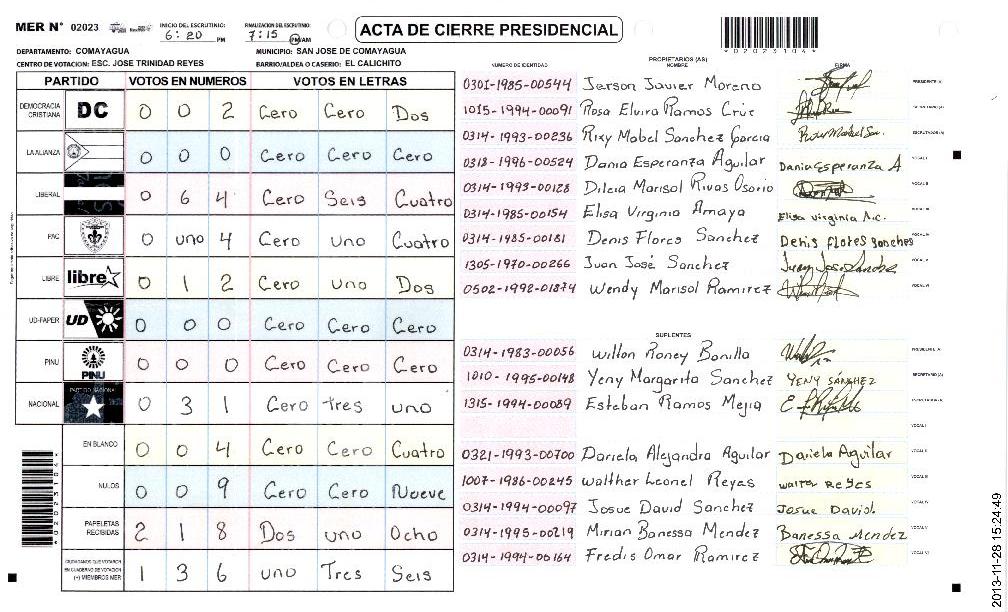 MER N° 02023 INICIO DEL ESCRUTINIO: 6:20 PM FINALIZACION DEL ESCRUTINIO: 7:15 PM/AM ACTA DE CIERRE PRESIDENCIAL *02023104*
DEPARTAMENTO: COMAYAGUA MUNICIPIO: SAN JOSE DE COMAYAGUA
CENTRO DE VOTACION: ESC. JOSE TRINIDAD REYES BARRIO/ALDEA O CASERIO: EL CALICHITO
PARTIDO VOTOS EN NUMEROS VOTOS EN LETRAS
DEMOCRACIA CRISTIANA DC 0 0 2 Cero Cero Dos
LA ALIANZA 0 0 0 Cero Cero Cero
LIBERAL 0 6 4 Cero Seis Cuatro
PAC 0 uno 4 Cero uno Cuatro
LIBRE libre 0 1 2 Cero uno Dos
UD-FAPER UD 0 0 0 Cero Cero Cero
PINU PINU 0 0 0 Cero Cero Cero
NACIONAL PARTIDO NACIONAL 0 3 1 Cero Tres uno
EN BLANCO 0 0 4 Cero Cero Cuatro
NULOS 0 0 9 Cero Cero Nueve
PAPELETAS RECIBIDAS 2 1 8 Dos uno Ocho
CIUDADANOS QUE VOTARON EN CUADERNO DE VOTACION (+) MIEMBROS MER 1 3 6 uno Tres Seis
*02023104*
NUMERO DE IDENTIDAD PROPIETARIOS (AS) NOMBRE FIRMA
0301-1985-00544 Jerson Javier Moreno PRESIDENTE (A)
1015-1994-00091 Rosa Elvira Ramos Cruz SECRETARIO (A)
0314-1993-00236 Rixy Mabel Sanchez Garcia ESCRUTADOR (A)
0318-1996-00524 Dania Esperanza Aguilar Dania Esperanza A VOCAL I
0314-1993-00128 Dilcia Marisol Rivas Osorio VOCAL II
0314-1985-00154 Elisa Virginia Amaya Elisa virginia A.c. VOCAL III
0314-1985-00181 Denis Flores Sanchez Denis flores sanches VOCAL IV
1305-1970-00266 Juan José Sanchez Juan Jose Sanchez VOCAL V
0502-1992-01874 Wendy Marisol Ramirez VOCAL VI
SUPLENTES
0314-1983-00056 Wilton Roney Bonilla PRESIDENTE (A)
1010-1995-00148 Yeny Margarita Sanchez YENY SÁNCHEZ SECRETARIO (A)
1315-1994-00089 Esteban Ramos Mejia ESCRUTADOR (A)
VOCAL I
0321-1993-00700 Dariela Alejandra Aguilar Dariela Aguilar VOCAL II
1007-1986-00245 Walther Leonel Reyes walter Reyes VOCAL III
0314-1994-00097 Josue David Sanchez Josue David. VOCAL IV
0314-1995-00219 Mirian Banessa Mendez Banessa Mendez VOCAL V
0314-1994-00164 Fredis Omar Ramirez VOCAL VI
2013-11-28 15:24:49